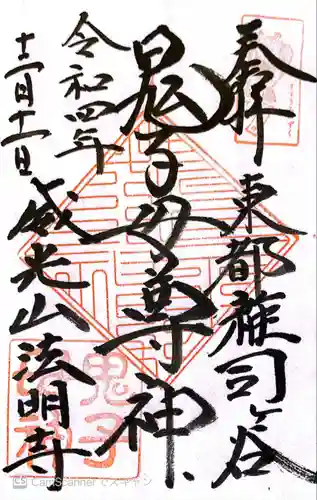 奉拝
東都雑司ヶ谷
鬼子母尊神
令和四年
十二月十一日
威光山法明寺
鬼子
CS CamScanner でスキャン